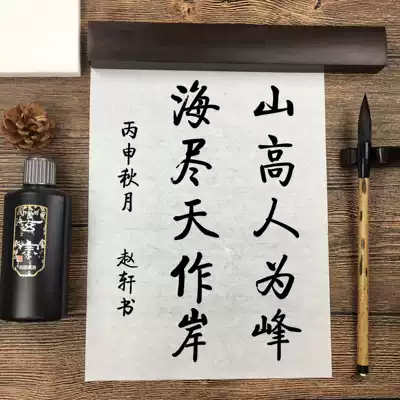 山高人为峰
海尽天作岸
丙申秋月 赵轩书